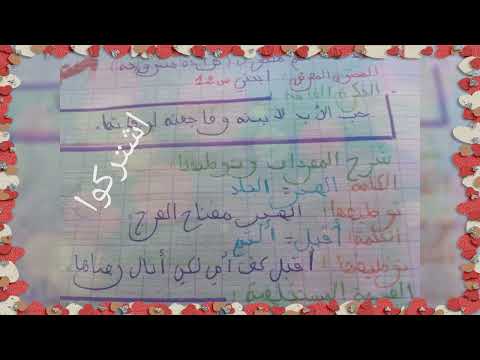 الفكرة العامة
حب الأب لابنه و فاجعته لوفاته.
شرح المفردات وتوظيفها
الكلمة: الصبر = الجلد
توظيفها: الصبر مفتاح الفرج
الكلمة: أقبل = ألثم
توظيفها: أقبل كف أمي لكي أنال رضاها.
القيمة المستخلصة:
اشتركوا